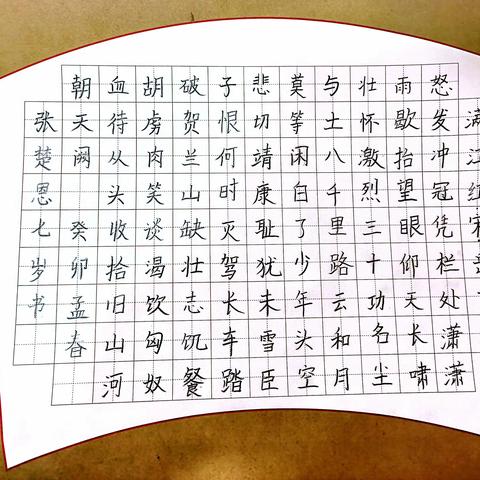 满江红宋
怒发冲冠凭栏处潇潇
雨歇抬望眼仰天长啸
壮怀激烈三十功名尘
与土八千里路云和月
莫等闲白了少年头空
悲切靖康耻犹未雪臣
子恨何时灭驾长车踏
破贺兰山缺壮志饥餐
胡虏肉笑谈渴饮匈奴
血待从头收拾旧山河
朝天阙 癸卯孟春
张楚恩七岁书